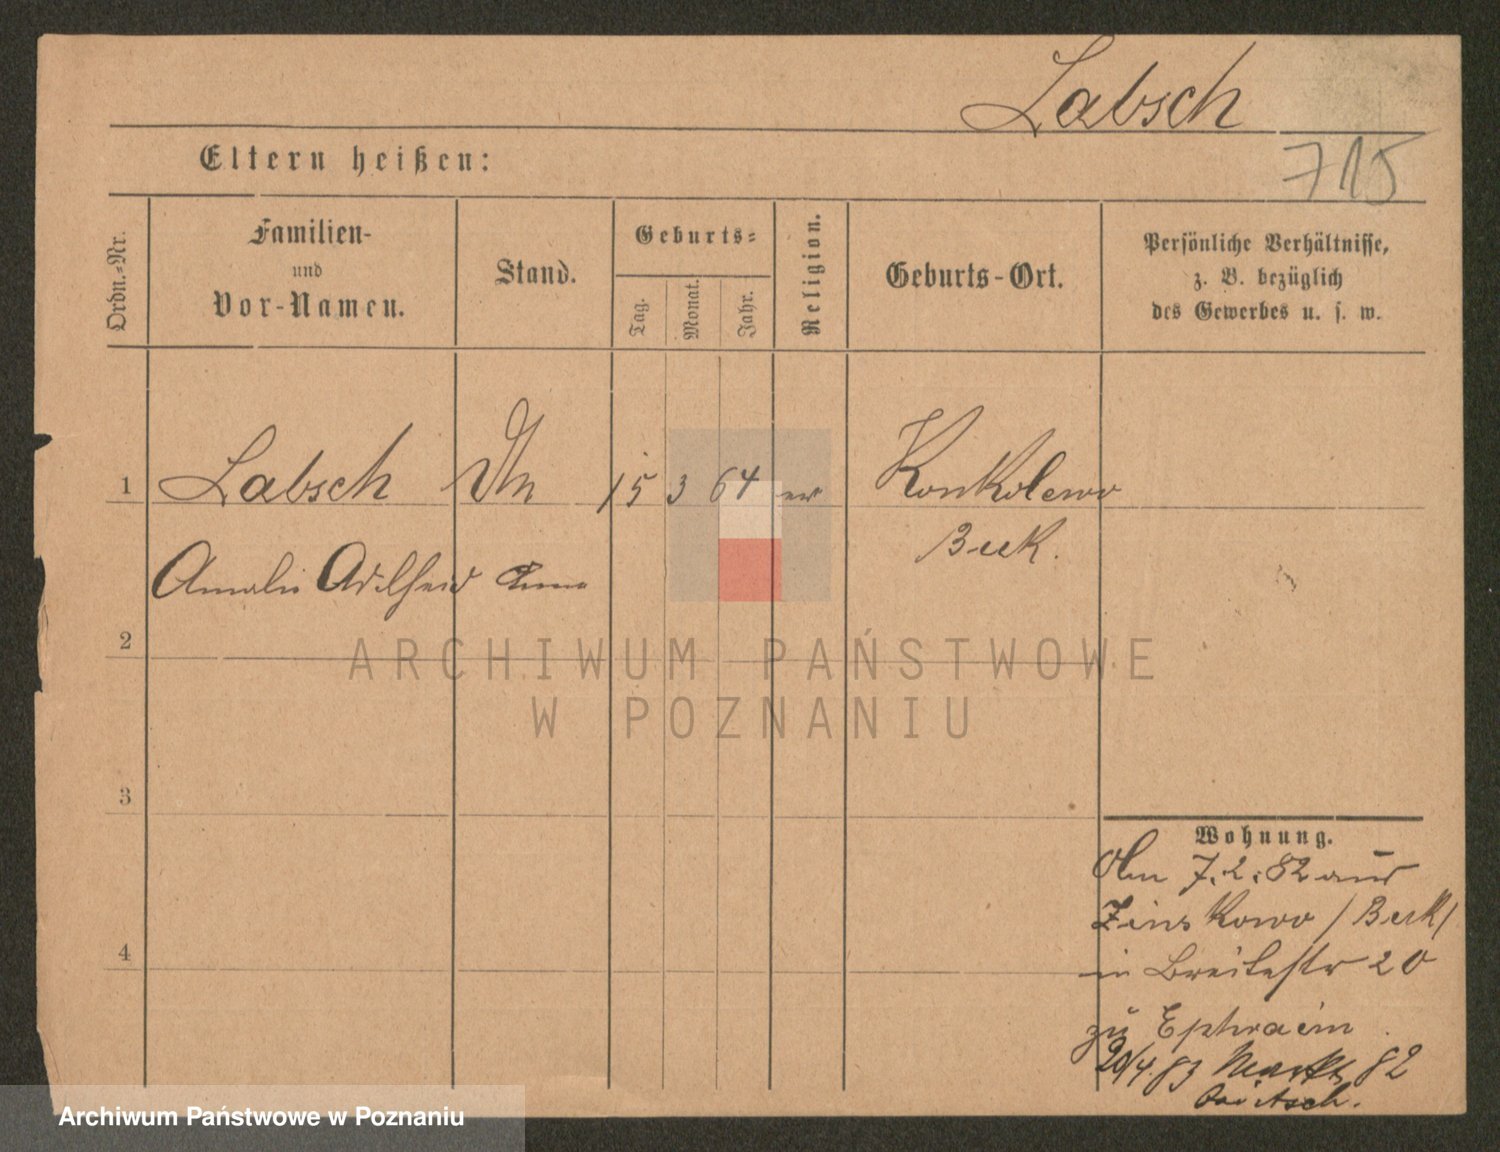 Labsch
715
Eltern heißen:
Ordn.=Nr.
Familien-
und
Vor-Namen.
Stand.
Geburts=
Tag.
Monat.
Jahr.
Religion.
Geburts-Ort.
Persönliche Verhältnisse,
z. B. bezüglich
des Gewerbes u. s. w.
1 Labsch 15 3 64 ev Konkolewo
Buk.
Amalie Adelheid Anna
2
ARCHIWUM PAŃSTWOWE
W POZNANIU
3
4
Wohnung.
7.2.82 aus
Zinskowo /Buk/
in Breitestr 20
zu Ephraim
20/4.83 Markt 82
Archiwum Państwowe w Poznaniu